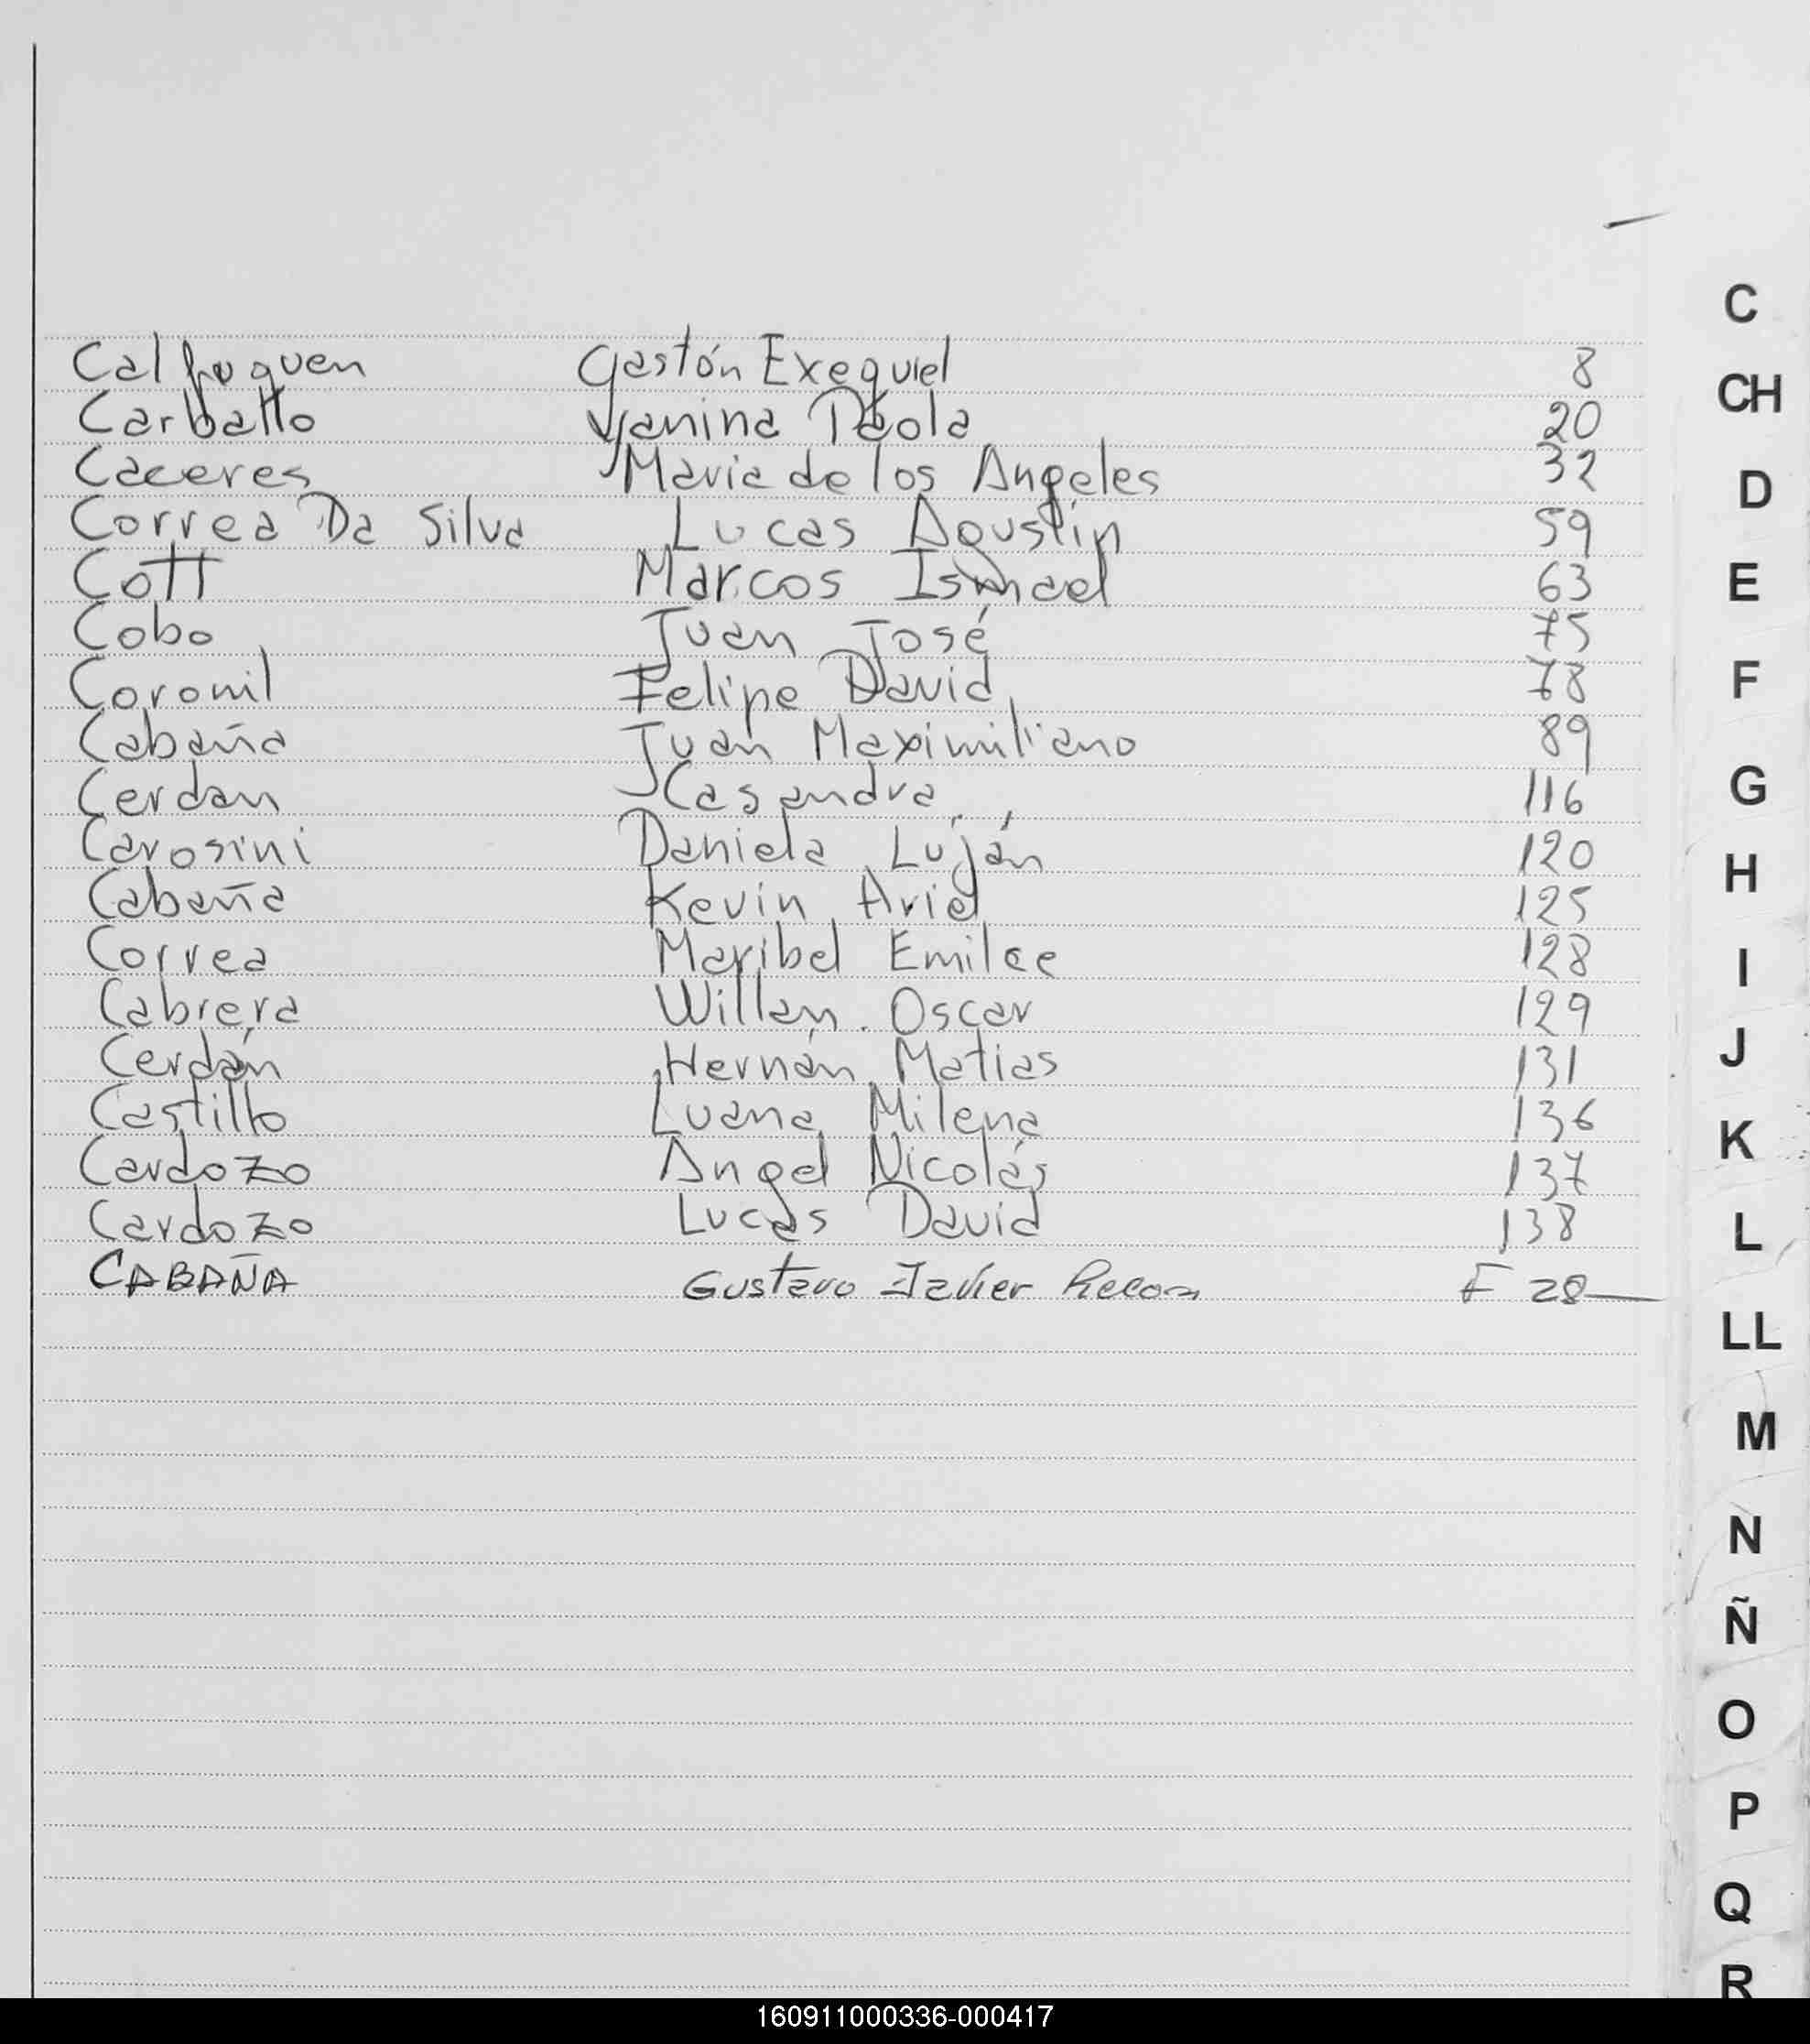 Calfuquen Gastón Exequiel 8
Carballo Yanina Paola 20
Caceres Maria de los Angeles 32
Correa Da Silva Lucas Agustin 59
Cott Marcos Ismael 63
Cobo Juan José 75
Coronil Felipe David 78
Cabaña Juan Maximiliano 89
Cerdan Casandra 116
Carosini Daniela Luján 120
Cabaña Kevin Ariel 125
Correa Maribel Emilce 128
Cabrera Willan Oscar 129
Cerdán Hernán Matias 131
Castillo Luana Milena 136
Cardozo Angel Nicolás 137
Cardozo Lucas David 138
CABAÑA Gustavo Javier F 28
C
CH
D
E
F
G
H
I
J
K
L
LL
M
N
Ñ
O
P
Q
R
160911000336-000417